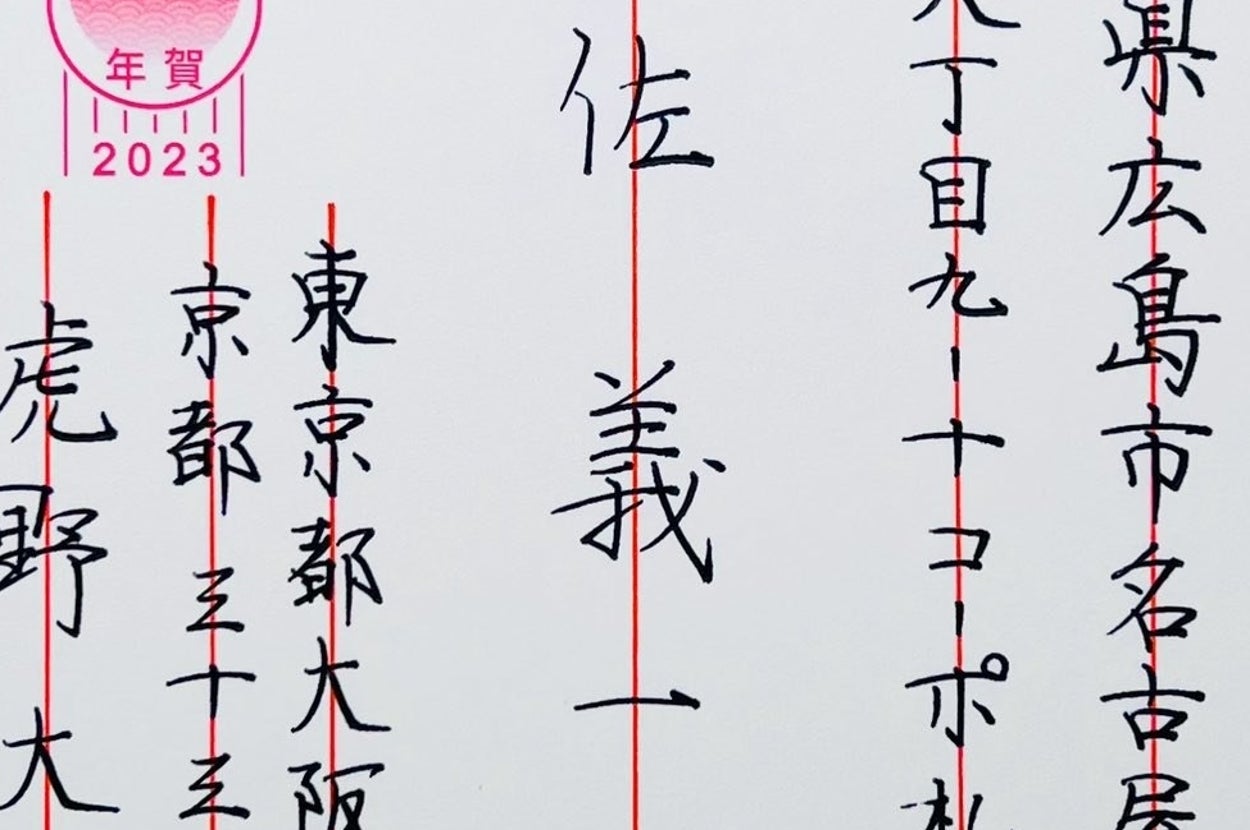 県広島市名古屋
丁目九ー十コーポ札
佐義一
東京都大阪
京都三十三
虎野大
年賀
2023